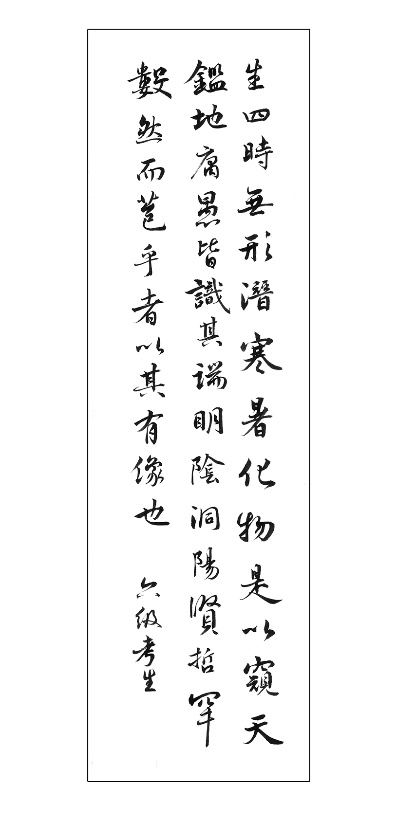 生四時無形潛寒暑化物是以窺天
鑑地庸愚皆識其端明陰洞陽賢哲罕
數然而苞乎者以其有像也
六級考生